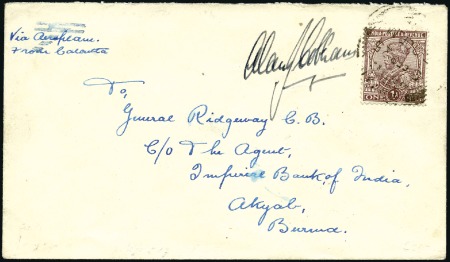 Via Aeroplane.
From Calcutta
Alan J Cobham
INDIA POSTAGE & REVENUE
ONE
To,
General Ridgeway C.B.
C/o The Agent,
Imperial Bank of India,
Akyab,
Burma.